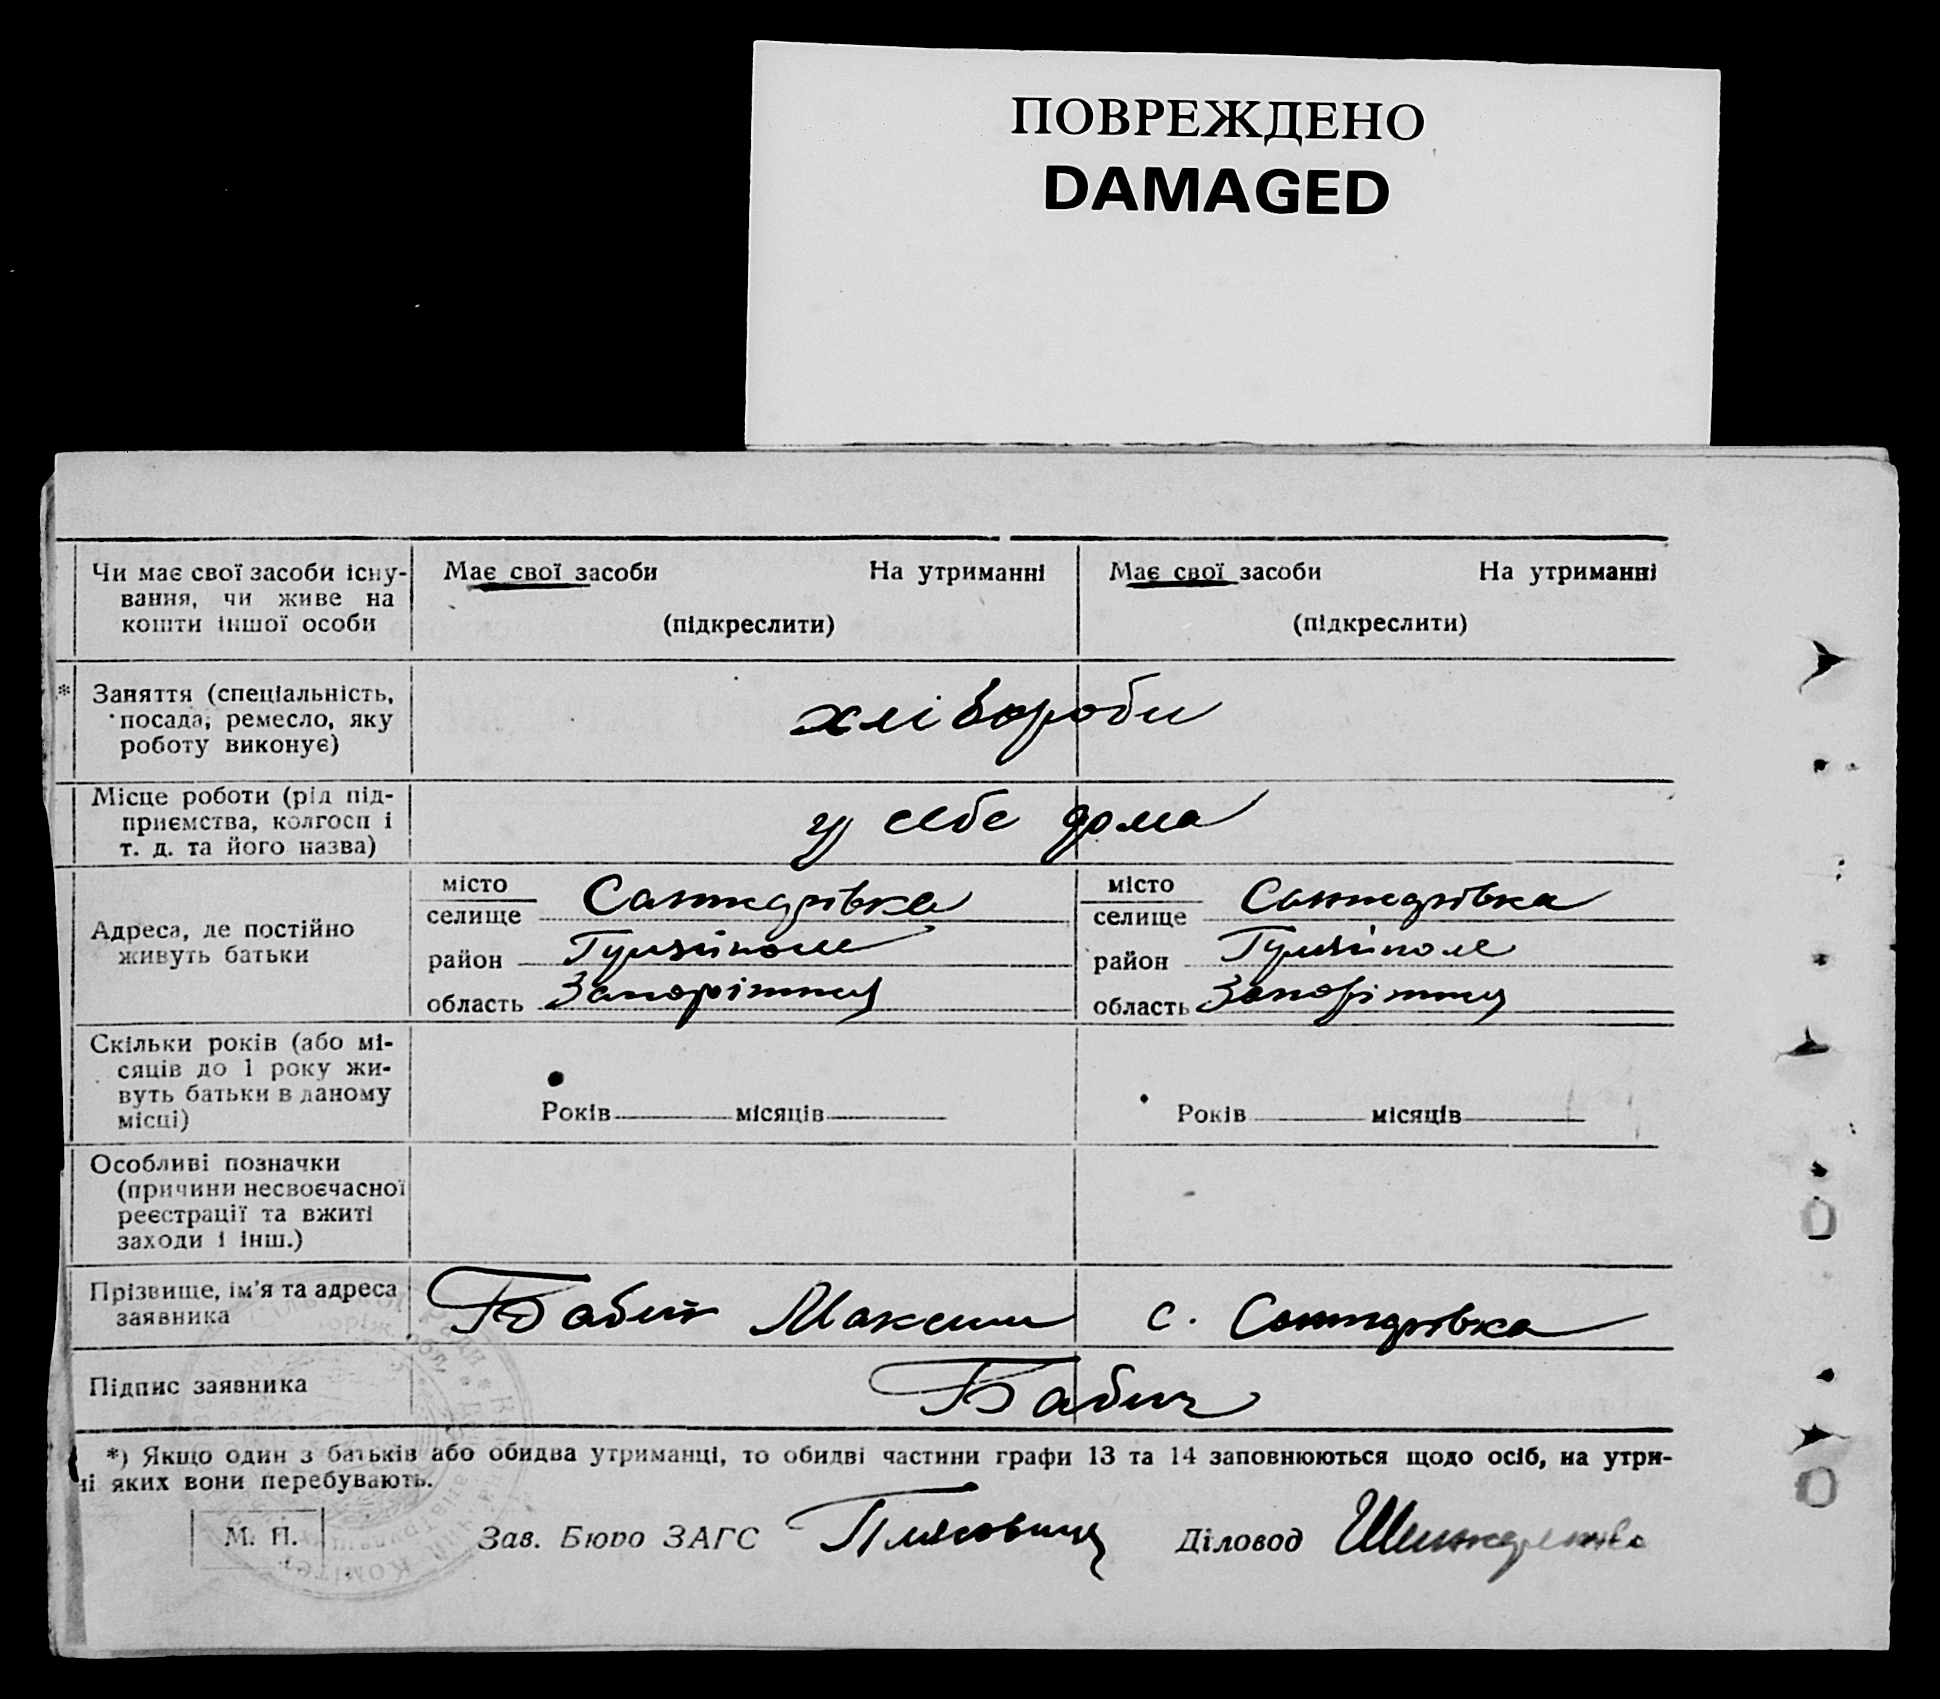 ПОВРЕЖДЕНО
DAMAGED
Чи має свої засоби існу-
вання, чи живе на
кошти іншої особи
Має свої засоби На утриманні
(підкреслити)
Має свої засоби На утриманні
(підкреслити)
* Заняття (спеціальність,
посада, ремесло, яку
роботу виконує)
хлібороби
Місце роботи (рід під-
приємства, колгосп і
т. д. та його назва)
у себе дома
Адреса, де постійно
живуть батьки
місто
селище Санжарівка
район Гуляйполе
область Запоріжжя
місто
селище Санжарівка
район Гуляйполе
область Запоріжжя
Скільки років (або мі-
сяців до 1 року жи-
вуть батьки в даному
місці)
Років місяців
Років місяців
Особливі позначки
(причини несвоєчасної
реєстрації та вжиті
заходи і інш.)
Прізвище, ім'я та адреса
заявника
Бабич Максим с. Санжарівка
Підпис заявника
Бабич
*) Якщо один з батьків або обидва утриманці, то обидві частини графи 13 та 14 заповнюються щодо осіб, на утри-
ні яких вони перебувають.
М. П.
Зав. Бюро ЗАГС Діловод